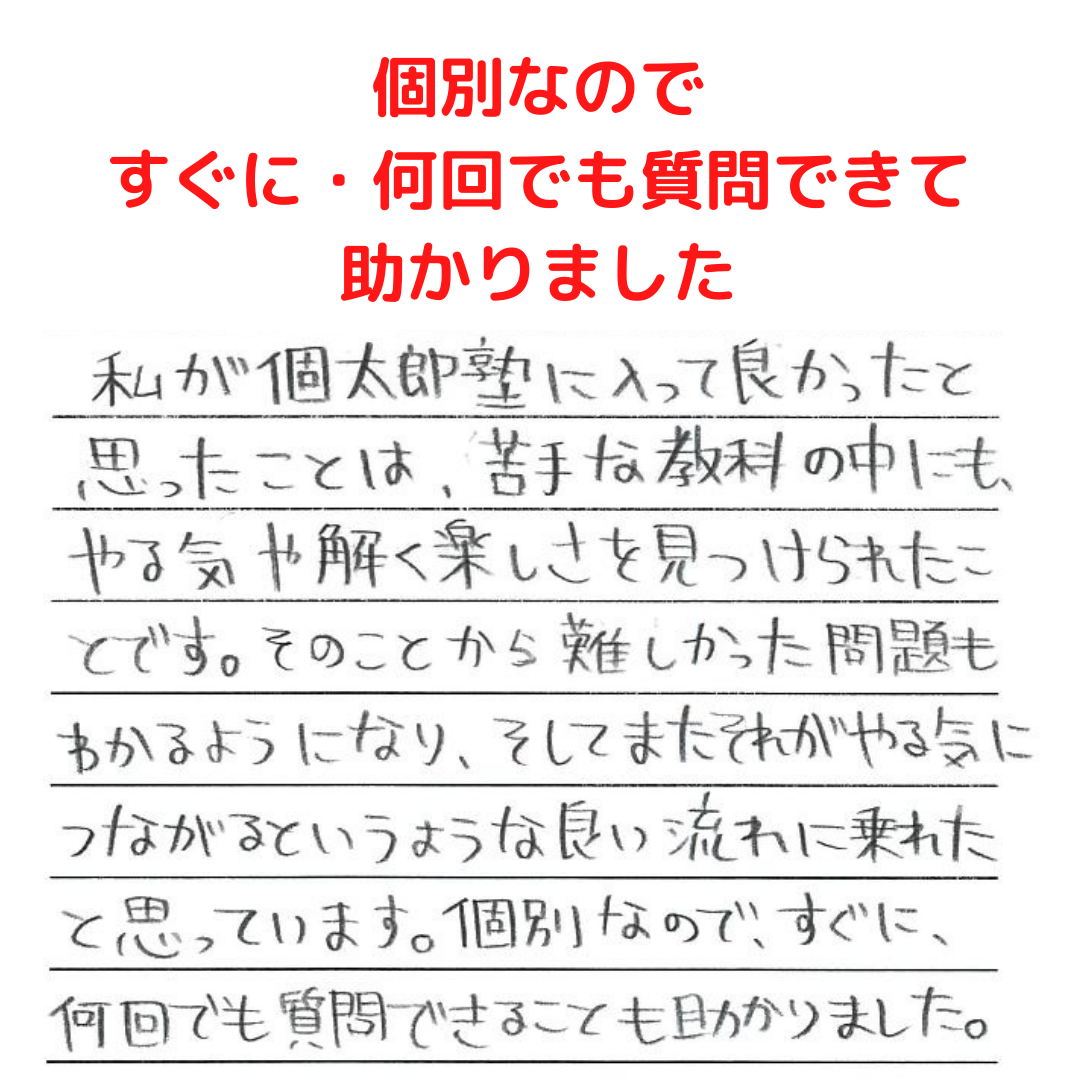 個別なので
すぐに・何回でも質問できて
助かりました
私が個太郎塾に入って良かったと
思ったことは、苦手な教科の中にも、
やる気や解く楽しさを見つけられたこ
とです。そのことから難しかった問題も
わかるようになり、そしてまたそれがやる気に
つながるというような良い流れに乗れた
と思っています。個別なので、すぐに、
何回でも質問できることも助かりました。